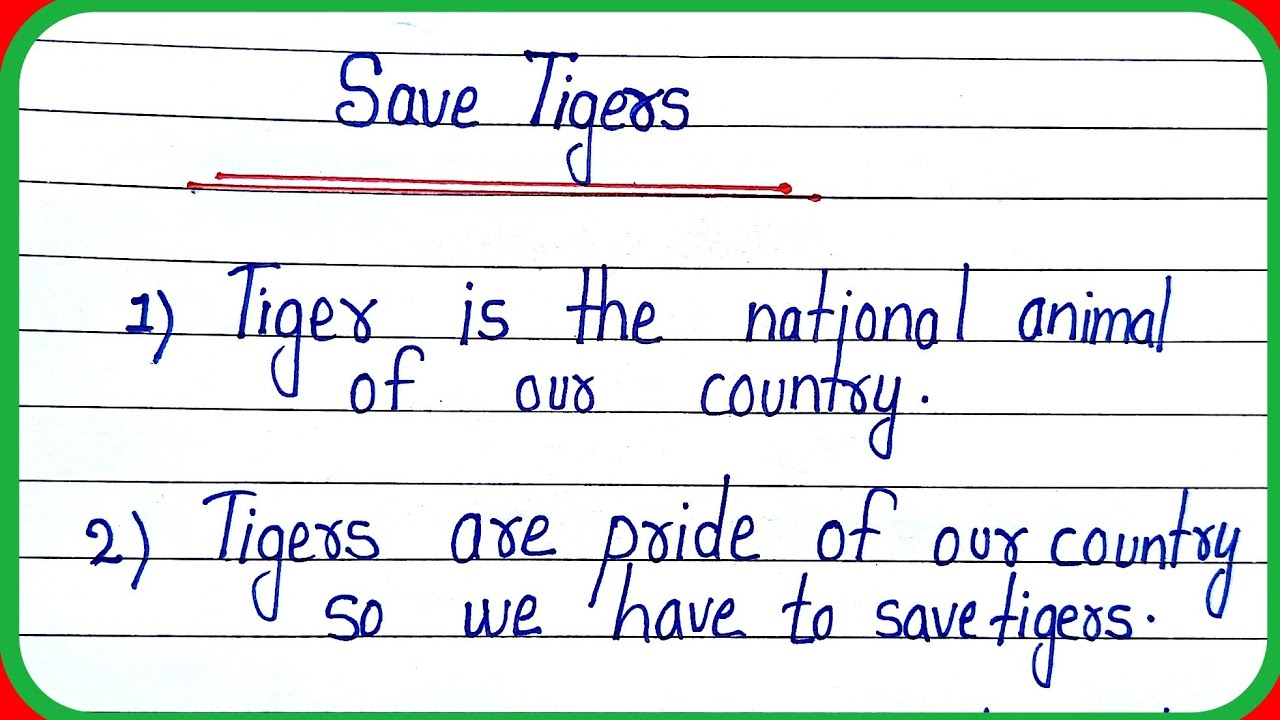 Save Tigers
1) Tiger is the national animal
of our country.
2) Tigers are pride of our country
so we have to save tigers.